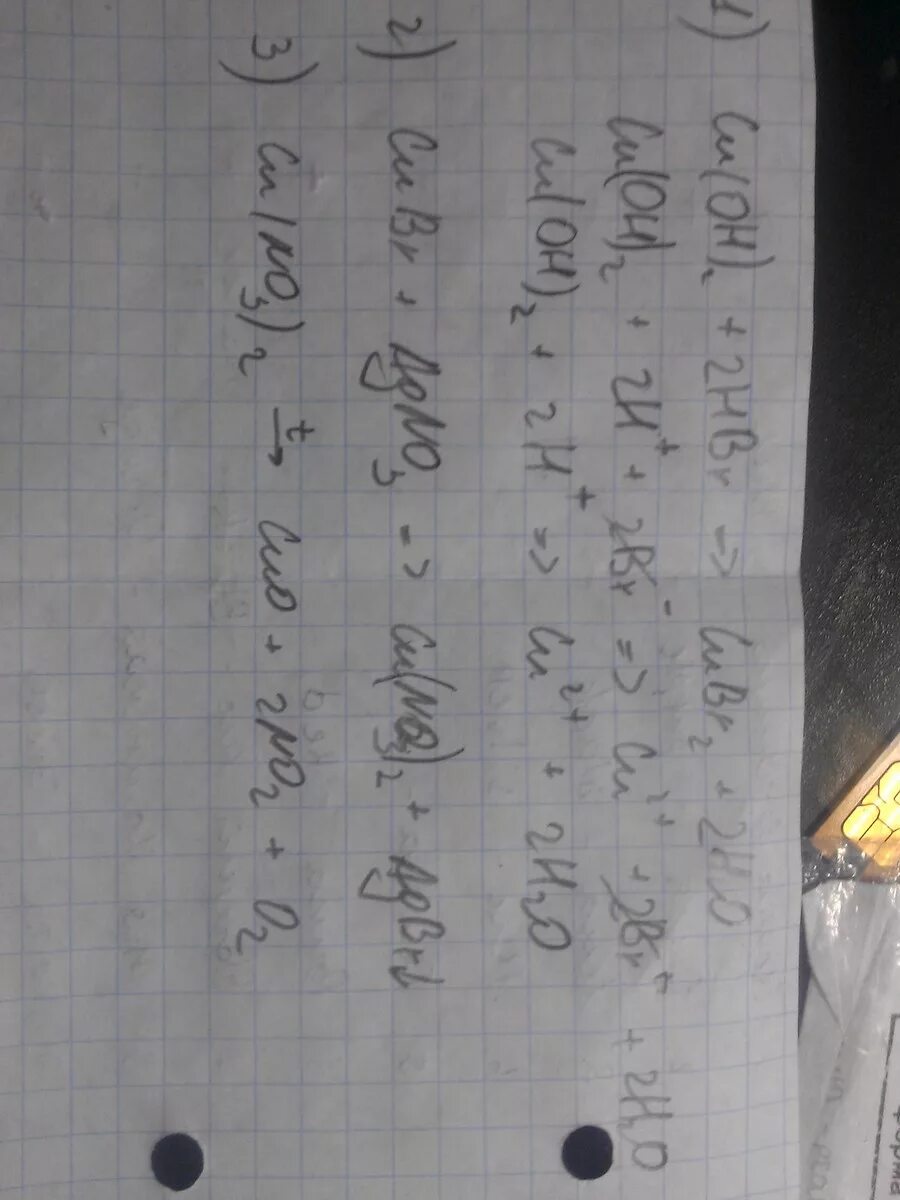 1) Cu(OH)₂ + 2HBr -> CuBr₂ + 2H₂O
Cu(OH)₂ + 2H⁺ + 2Br⁻ => Cu²⁺ + 2Br⁺ + 2H₂O
Cu(OH)₂ + 2H⁺ => Cu²⁺ + 2H₂O
2) CuBr + AgNO₃ -> Cu(NO₃)₂ + AgBr↓
3) Cu(NO₃)₂ t→ CuO + 2NO₂ + O₂